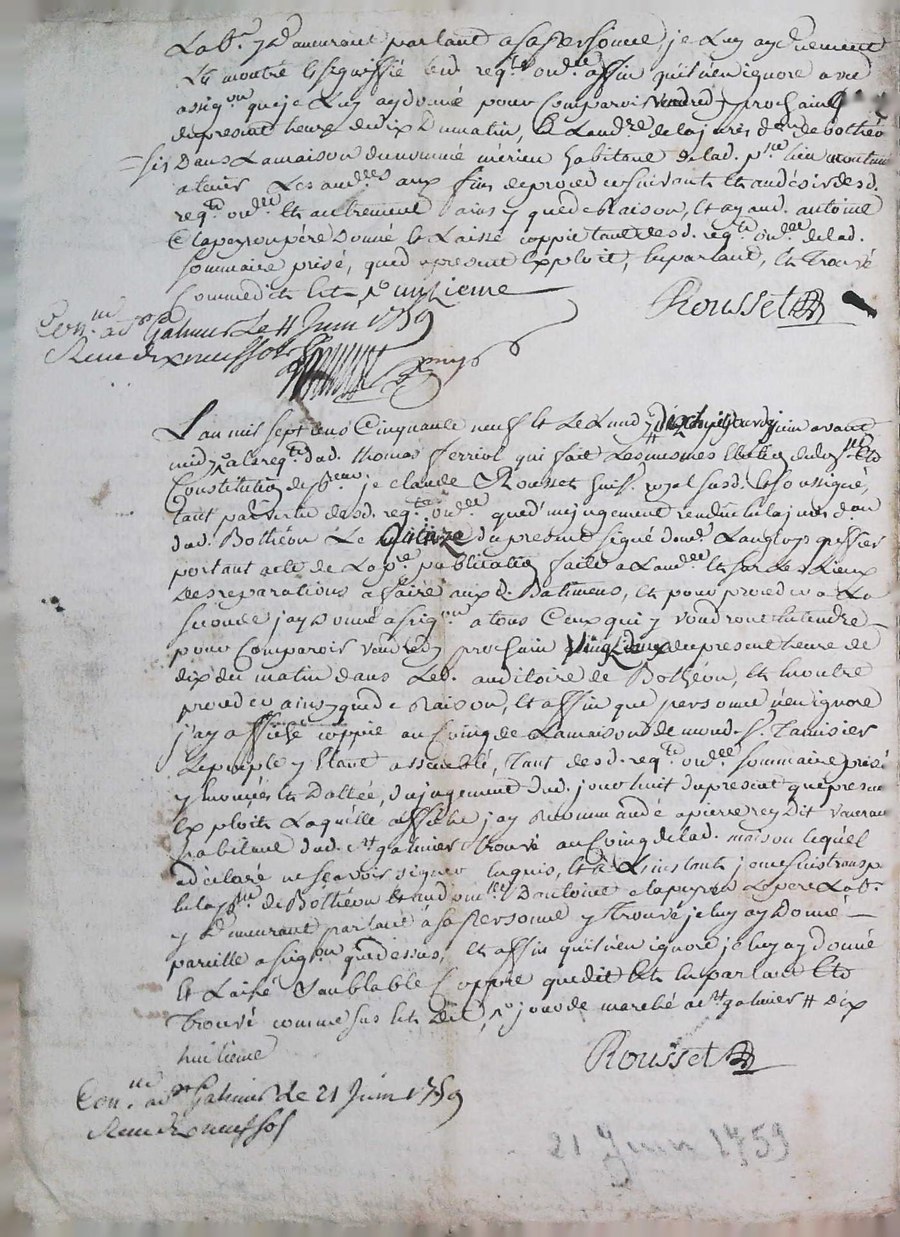 Lab.r y demeurant parlant a sa personne, je luy ay deuement
montré et signiffié lad. req.te ord.ce affin qu'il n'en ignore avec
assig.on que je luy ay donné pour comparoir vendredy prochain
du present heure de dix du matin, de la jurisd.on de Botheo
dans la maison du nommé mérieu habitant dud. lieu
a tenir les aud.ces aux fins de proceder suivant et au désir desd.
req.te ord.ce et autrement ainsy que de raison, et ay aud. antoine
Clapeyron père donné et laissé coppie tant desd. req.te ord.ce
sommaire prisé, que du present exploit, en parlant, et trouvé
comme dit est onzieme
Rousset
Con.llé a St Galmier le 11 Juin 1759
Reçu dix neuf sols
L'an mil sept cens cinquante neuf et le Lundy dix huit juin avant
midy a la req.te dud. thomas ferriol qui fait les mesmes election de dom.lle et
constitution de p.reur, je claude Rousset huis. royal susd. et soussigné,
tant par vertu desd. req.te ord.ce que d'un jugement rendu en la jurisd.on
dud. Bothéon le quinze du present signé Langloys greffier
portant acte de la p.re publication faitte a l'aud.ce et sur les lieux
des reparations a faire auxd. Batimens, et pour proceder a la
seconde j'ay donné assig.on a tous ceux qui y voudront entendre
pour comparoir vendredy prochain vingt deux du present heure de
dix du matin dans led. auditoire de Bothéon, et montre
proceder ainsy que de raison, et affin que personne n'en ignore
j'ay affiché coppie au coing de la maison de mond. S.r Tamisier
Le peuple y etant assemblé, tant desd. req.te ord.ce sommaire prisé
y enoncés et dattée, du jugement dud. jour huit du present que present
exploit laquelle affiche j'ay recommandé a pierre rey dit
habitant dud. St galmier trouvé au coing de lad. maison lequel
a déclaré ne sçavoir signer enquis, et a l'instant je me suis transp.
D'antoine clapeyron le pere Lab.r
y demeurant parlant à sa personne y trouvé je luy ay donné
pareille assig.on que dessus, et affin qu'il n'en ignore je luy ay donné
et laissé semblable coppie que dit est en parlant et
trouvé comme sus est dit, jour de marché a St galmier dix
huitieme
Rousset
Con.llé a St Galmier le 21 Juin 1759
Reçu dix neuf sols
21 Juin 1759